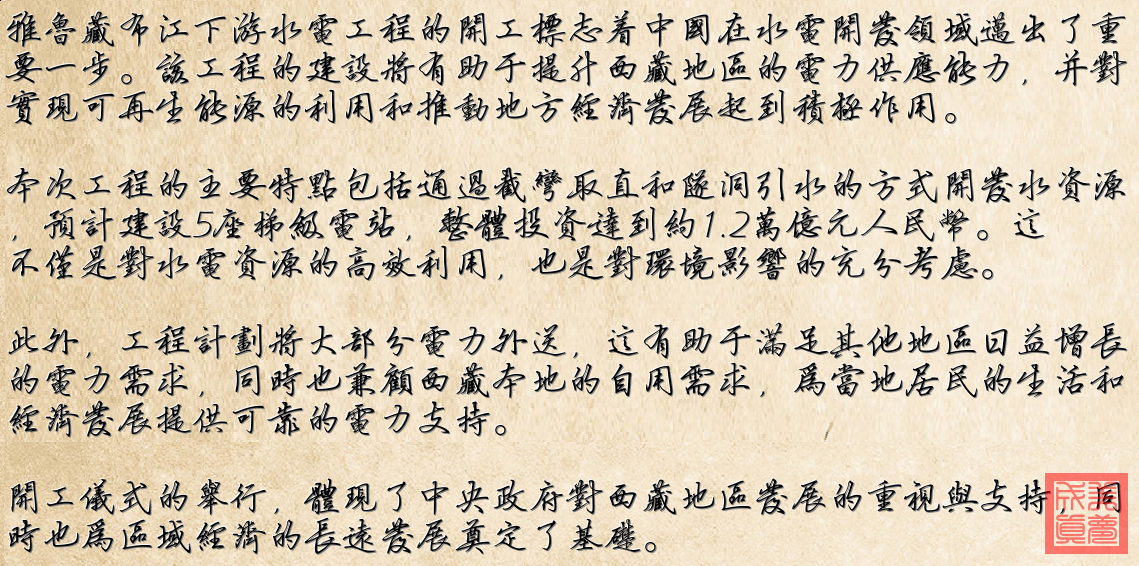 雅魯藏布江下游水電工程的開工標志着中國在水電開發領域邁出了重
要一步。該工程的建設將有助于提升西藏地區的電力供應能力，并對
實現可再生能源的利用和推動地方經濟發展起到積極作用。
本次工程的主要特點包括通過截彎取直和隧洞引水的方式開發水資源
，預計建設5座梯級電站，整體投資達到約1.2萬億元人民幣。這
不僅是對水電資源的高效利用，也是對環境影響的充分考慮。
此外，工程計劃將大部分電力外送，這有助于滿足其他地區日益增長
的電力需求，同時也兼顧西藏本地的自用需求，爲當地居民的生活和
經濟發展提供可靠的電力支持。
開工儀式的舉行，體現了中央政府對西藏地區發展的重視與支持，同
時也爲區域經濟的長遠發展奠定了基礎。